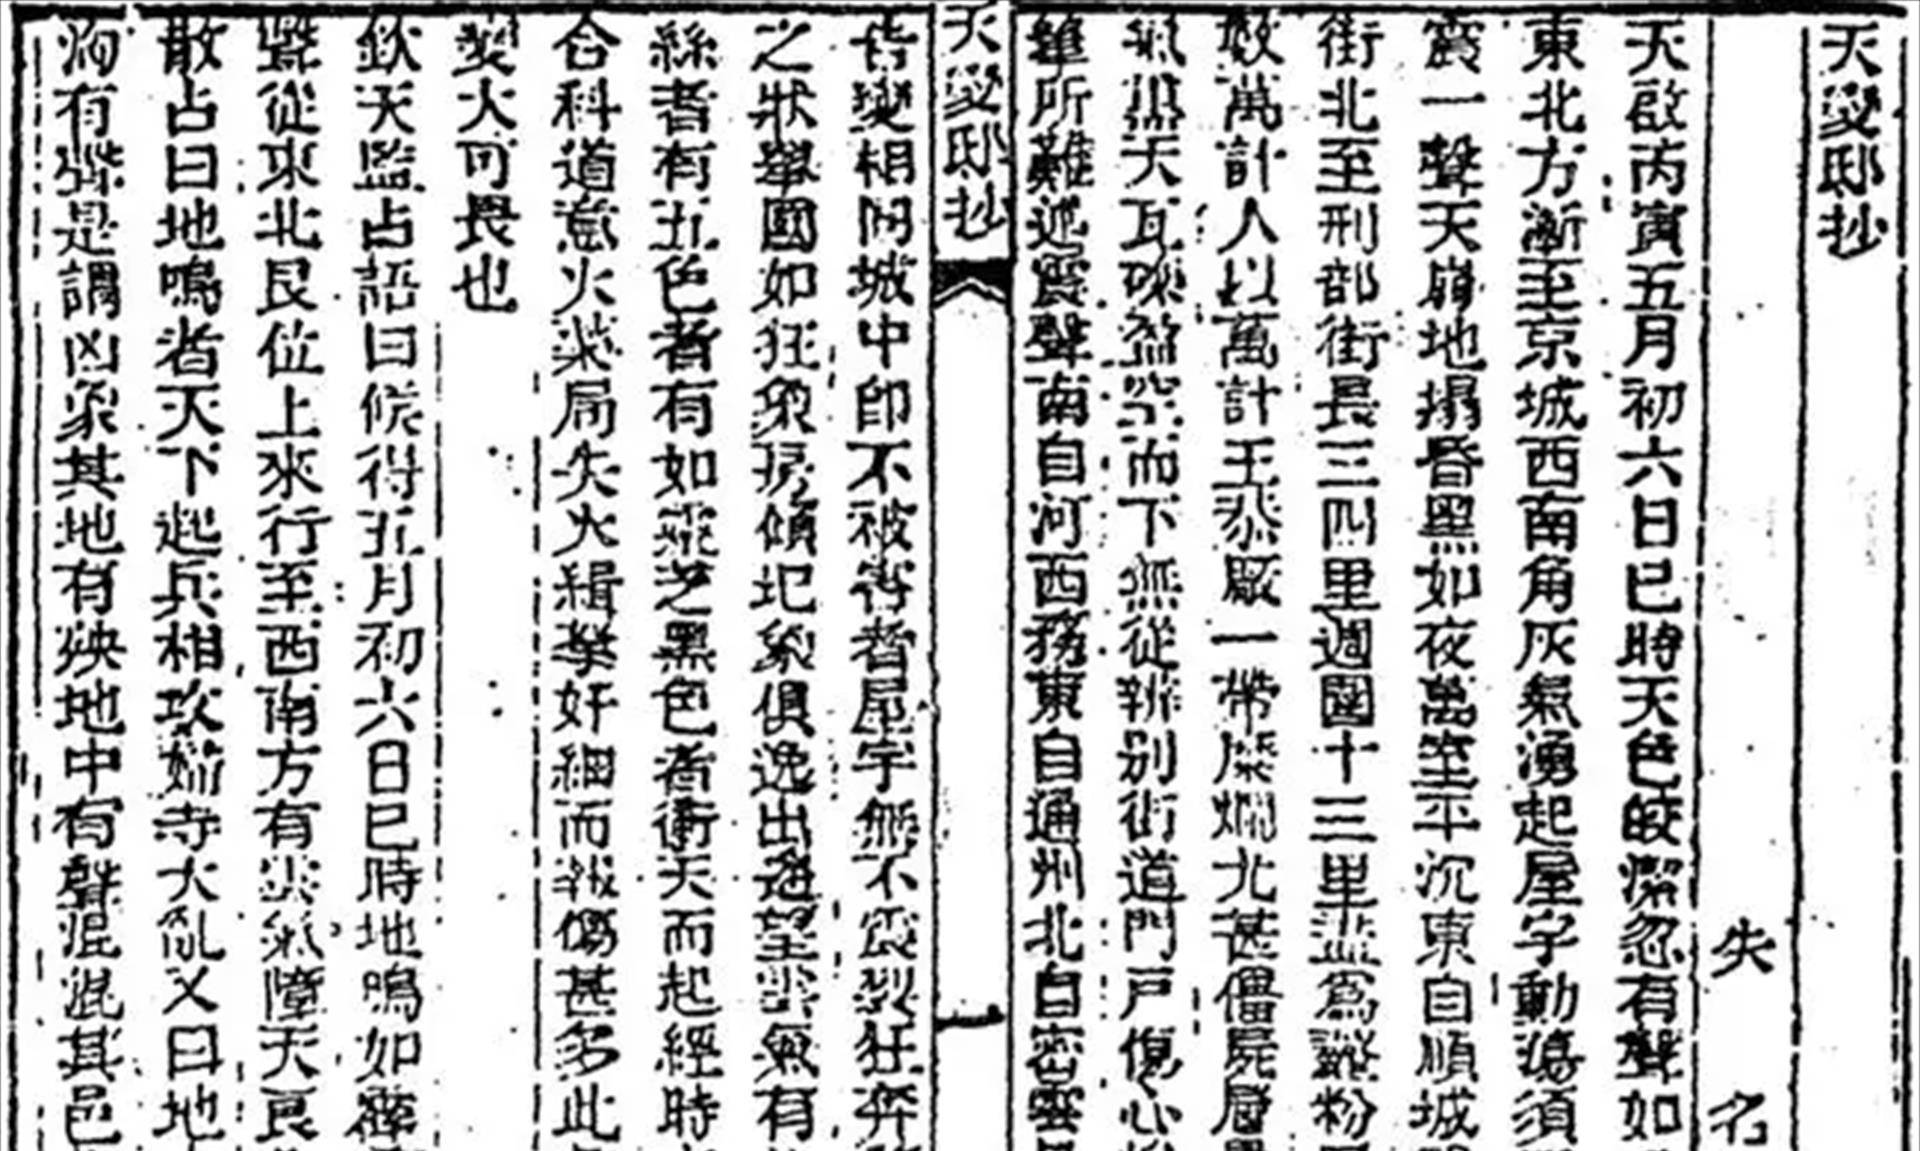 天變邸抄
失名
天啟丙寅五月初六日巳時天色皎潔忽有聲如
東北方漸至京城西南角灰氣湧起屋宇動盪須
震一聲天崩地塌昏黑如夜萬室平沉東自順城
街北至刑部街長三四里週圍十三里盡為齏粉
數萬計人以萬計王恭廠一帶糜爛尤甚僵屍層
氣熏天瓦礫盈空而下無從辨別街道門戶傷心
筆所難述震聲南自河西務東自通州北自密雲
天變邸抄
一
告變相同城中即不被害者屋宇無不震裂狂奔
之狀舉國如狂象房傾圮象俱逸出遙望雲氣有
絲者有五色者有如靈芝黑色者衝天而起經時
合科道意火藥局失火緝拏奸細而報傷甚多此
異大可畏也
欽天監占語曰候得五月初六日巳時地鳴如霹
聲從東北艮位上來行至西南方有雲氣障天良
散占曰地鳴者天下起兵相攻婦寺大亂又曰地
洶有聲是謂凶象其地有殃地中有聲混混其邑